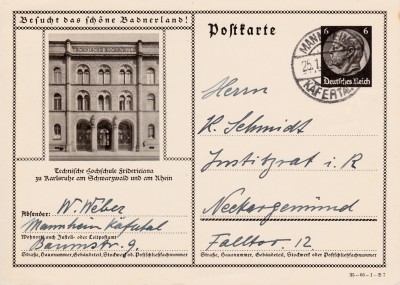 Besucht das schöne Badnerland!
Technische Hochschule Fridericiana
zu Karlsruhe am Schwarzwald und am Rhein
Absender: W. Weber
Mannheim Käfertal
Wohnort, auch Zustell- oder Leitpostamt
Baumstr. 9.
Straße, Hausnummer, Gebäudeteil, Stockwerk od. Postschließfachnummer
Postkarte
6 6
Deutsches Reich
MANNHEIM
25.1.
KÄFERTAL
Herrn
K. Schmidt
Justizrat i. R
Neckargemünd
Falltor. 12.
Straße, Hausnummer, Gebäudeteil, Stockwerk oder Postschließfachnummer